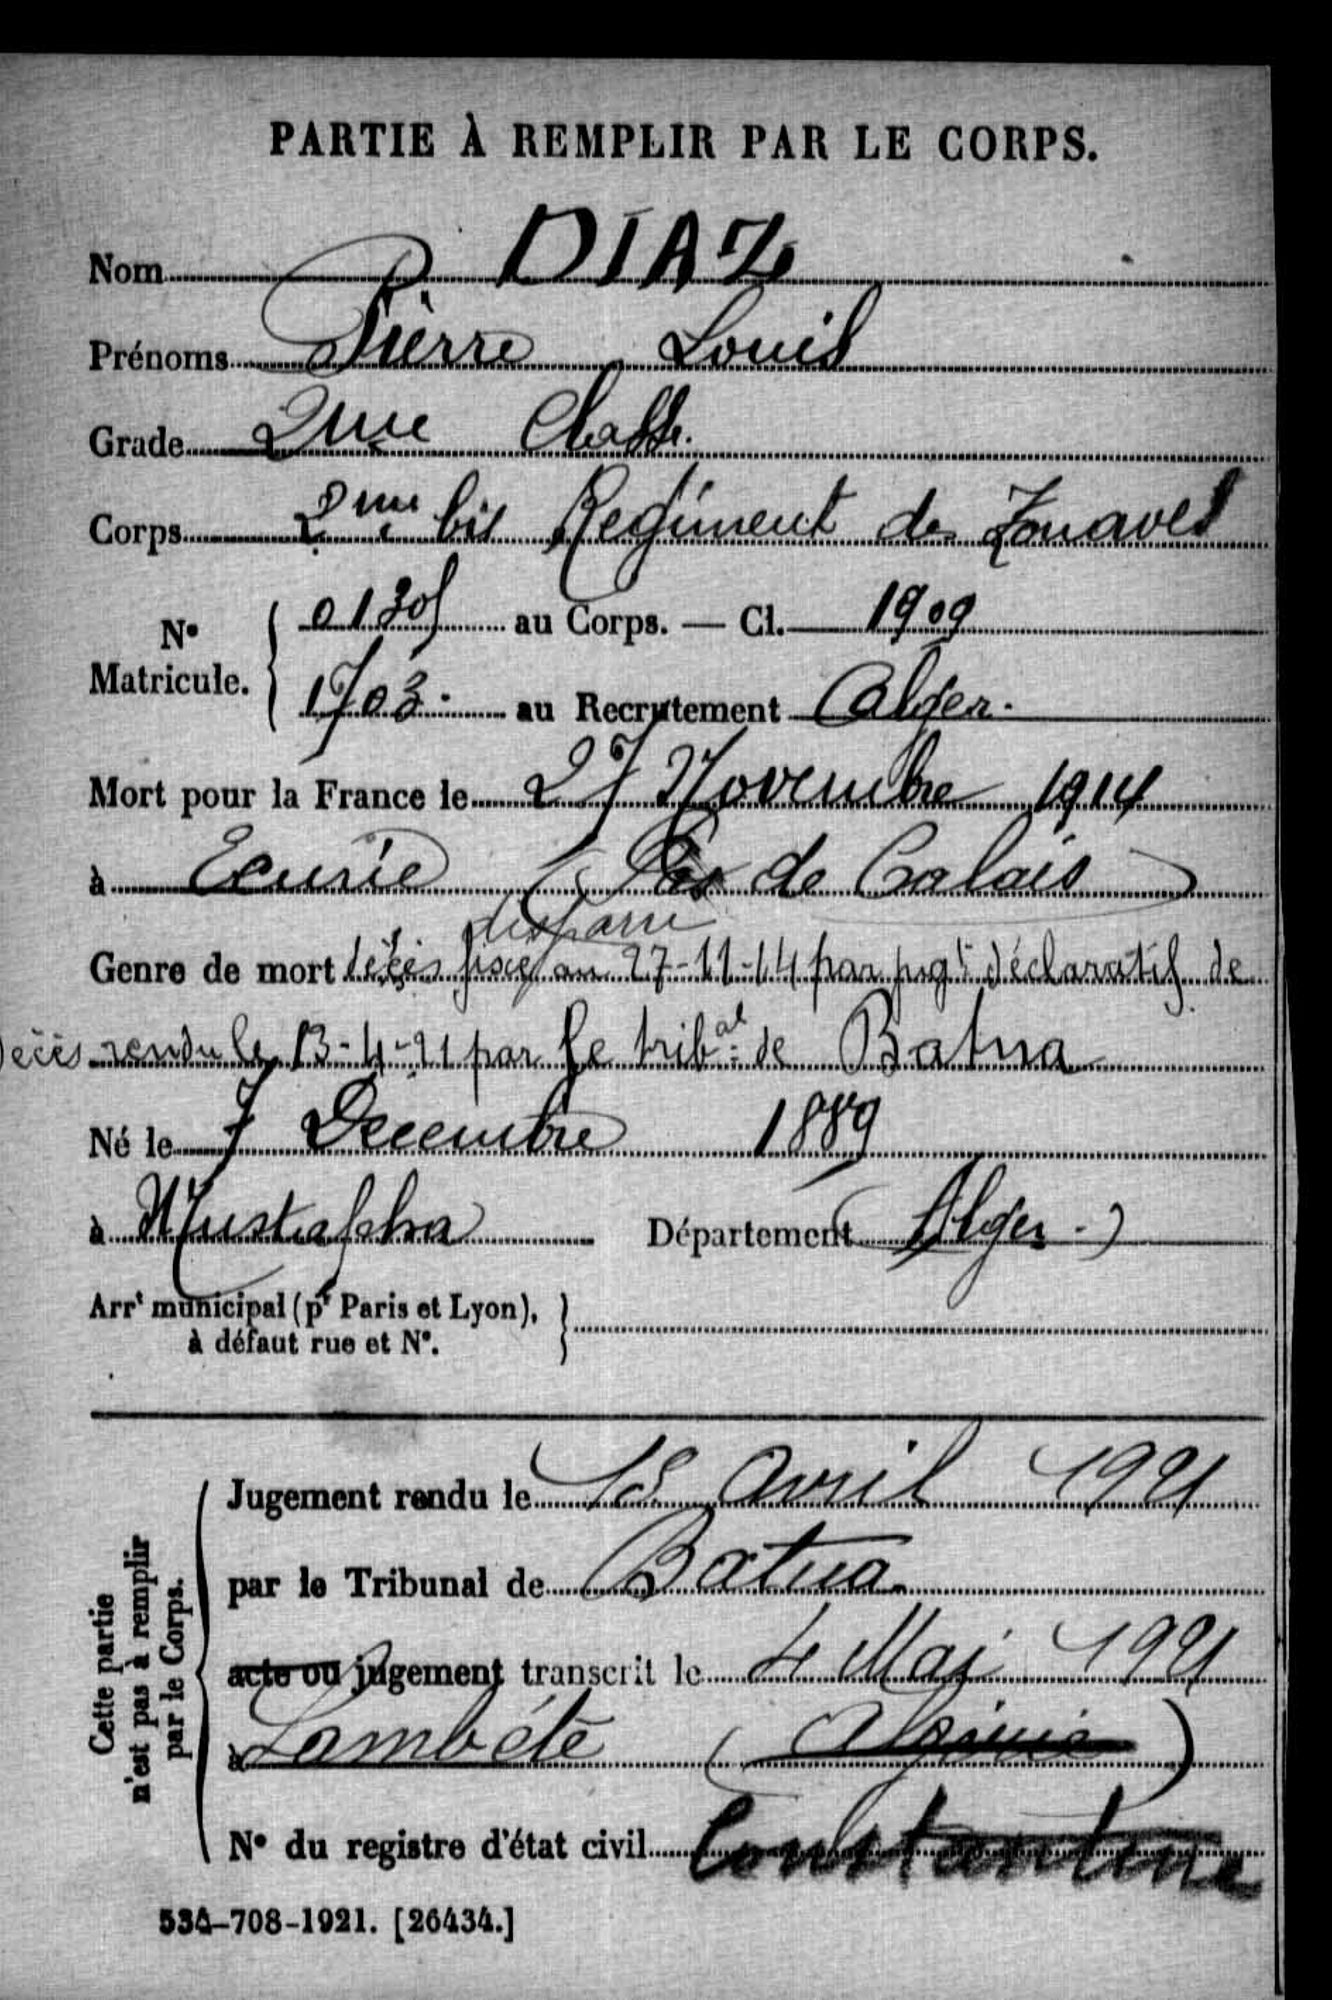 PARTIE À REMPLIR PAR LE CORPS.
Nom DIAZ
Prénoms Pierre Louis
Grade 2me Classe.
Corps 2me bis Regiment de Zouaves
N° Matricule. { 01305 au Corps. — Cl. 1909
1703. au Recrutement Alger.
Mort pour la France le 27 Novembre 1914
à Ecurie (Pas de Calais)
disparu
Genre de mort décès fixé au 27-11-14 par jugt déclaratif de
décès rendu le 13-4-21 par le tribal de Batna
Né le 7 Décembre 1889
à Mustapha Département Alger.)
Arrt municipal (pr Paris et Lyon), à défaut rue et N°. }
Cette partie n'est pas à remplir par le Corps.
Jugement rendu le 13 Avril 1921
par le Tribunal de Batna.
acte ou jugement transcrit le 4 Mai 1921
à Lambèse (Algérie)
N° du registre d'état civil Constantine
534-708-1921. [26434.]